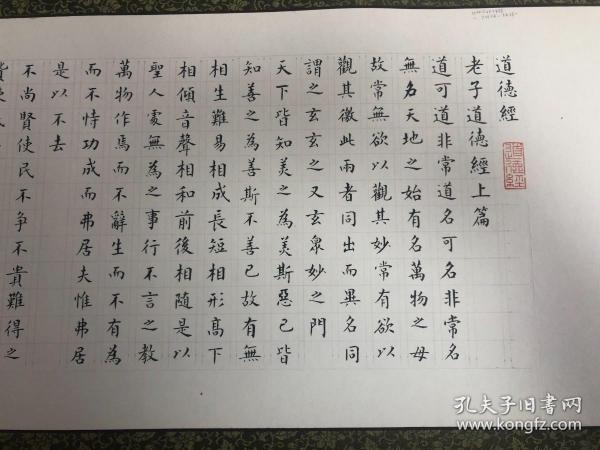 道德經
老子道德經上篇
道可道非常道名可名非常名
無名天地之始有名萬物之母
故常無欲以觀其妙常有欲以
觀其徼此兩者同出而異名同
謂之玄玄之又玄衆妙之門
天下皆知美之為美斯惡已皆
知善之為善斯不善已故有無
相生難易相成長短相形高下
相傾音聲相和前後相隨是以
聖人處無為之事行不言之教
萬物作焉而不辭生而不有為
而不恃功成而弗居夫惟弗居
是以不去
不尚賢使民不爭不貴難得之
孔夫子旧书网
www.kongfz.com